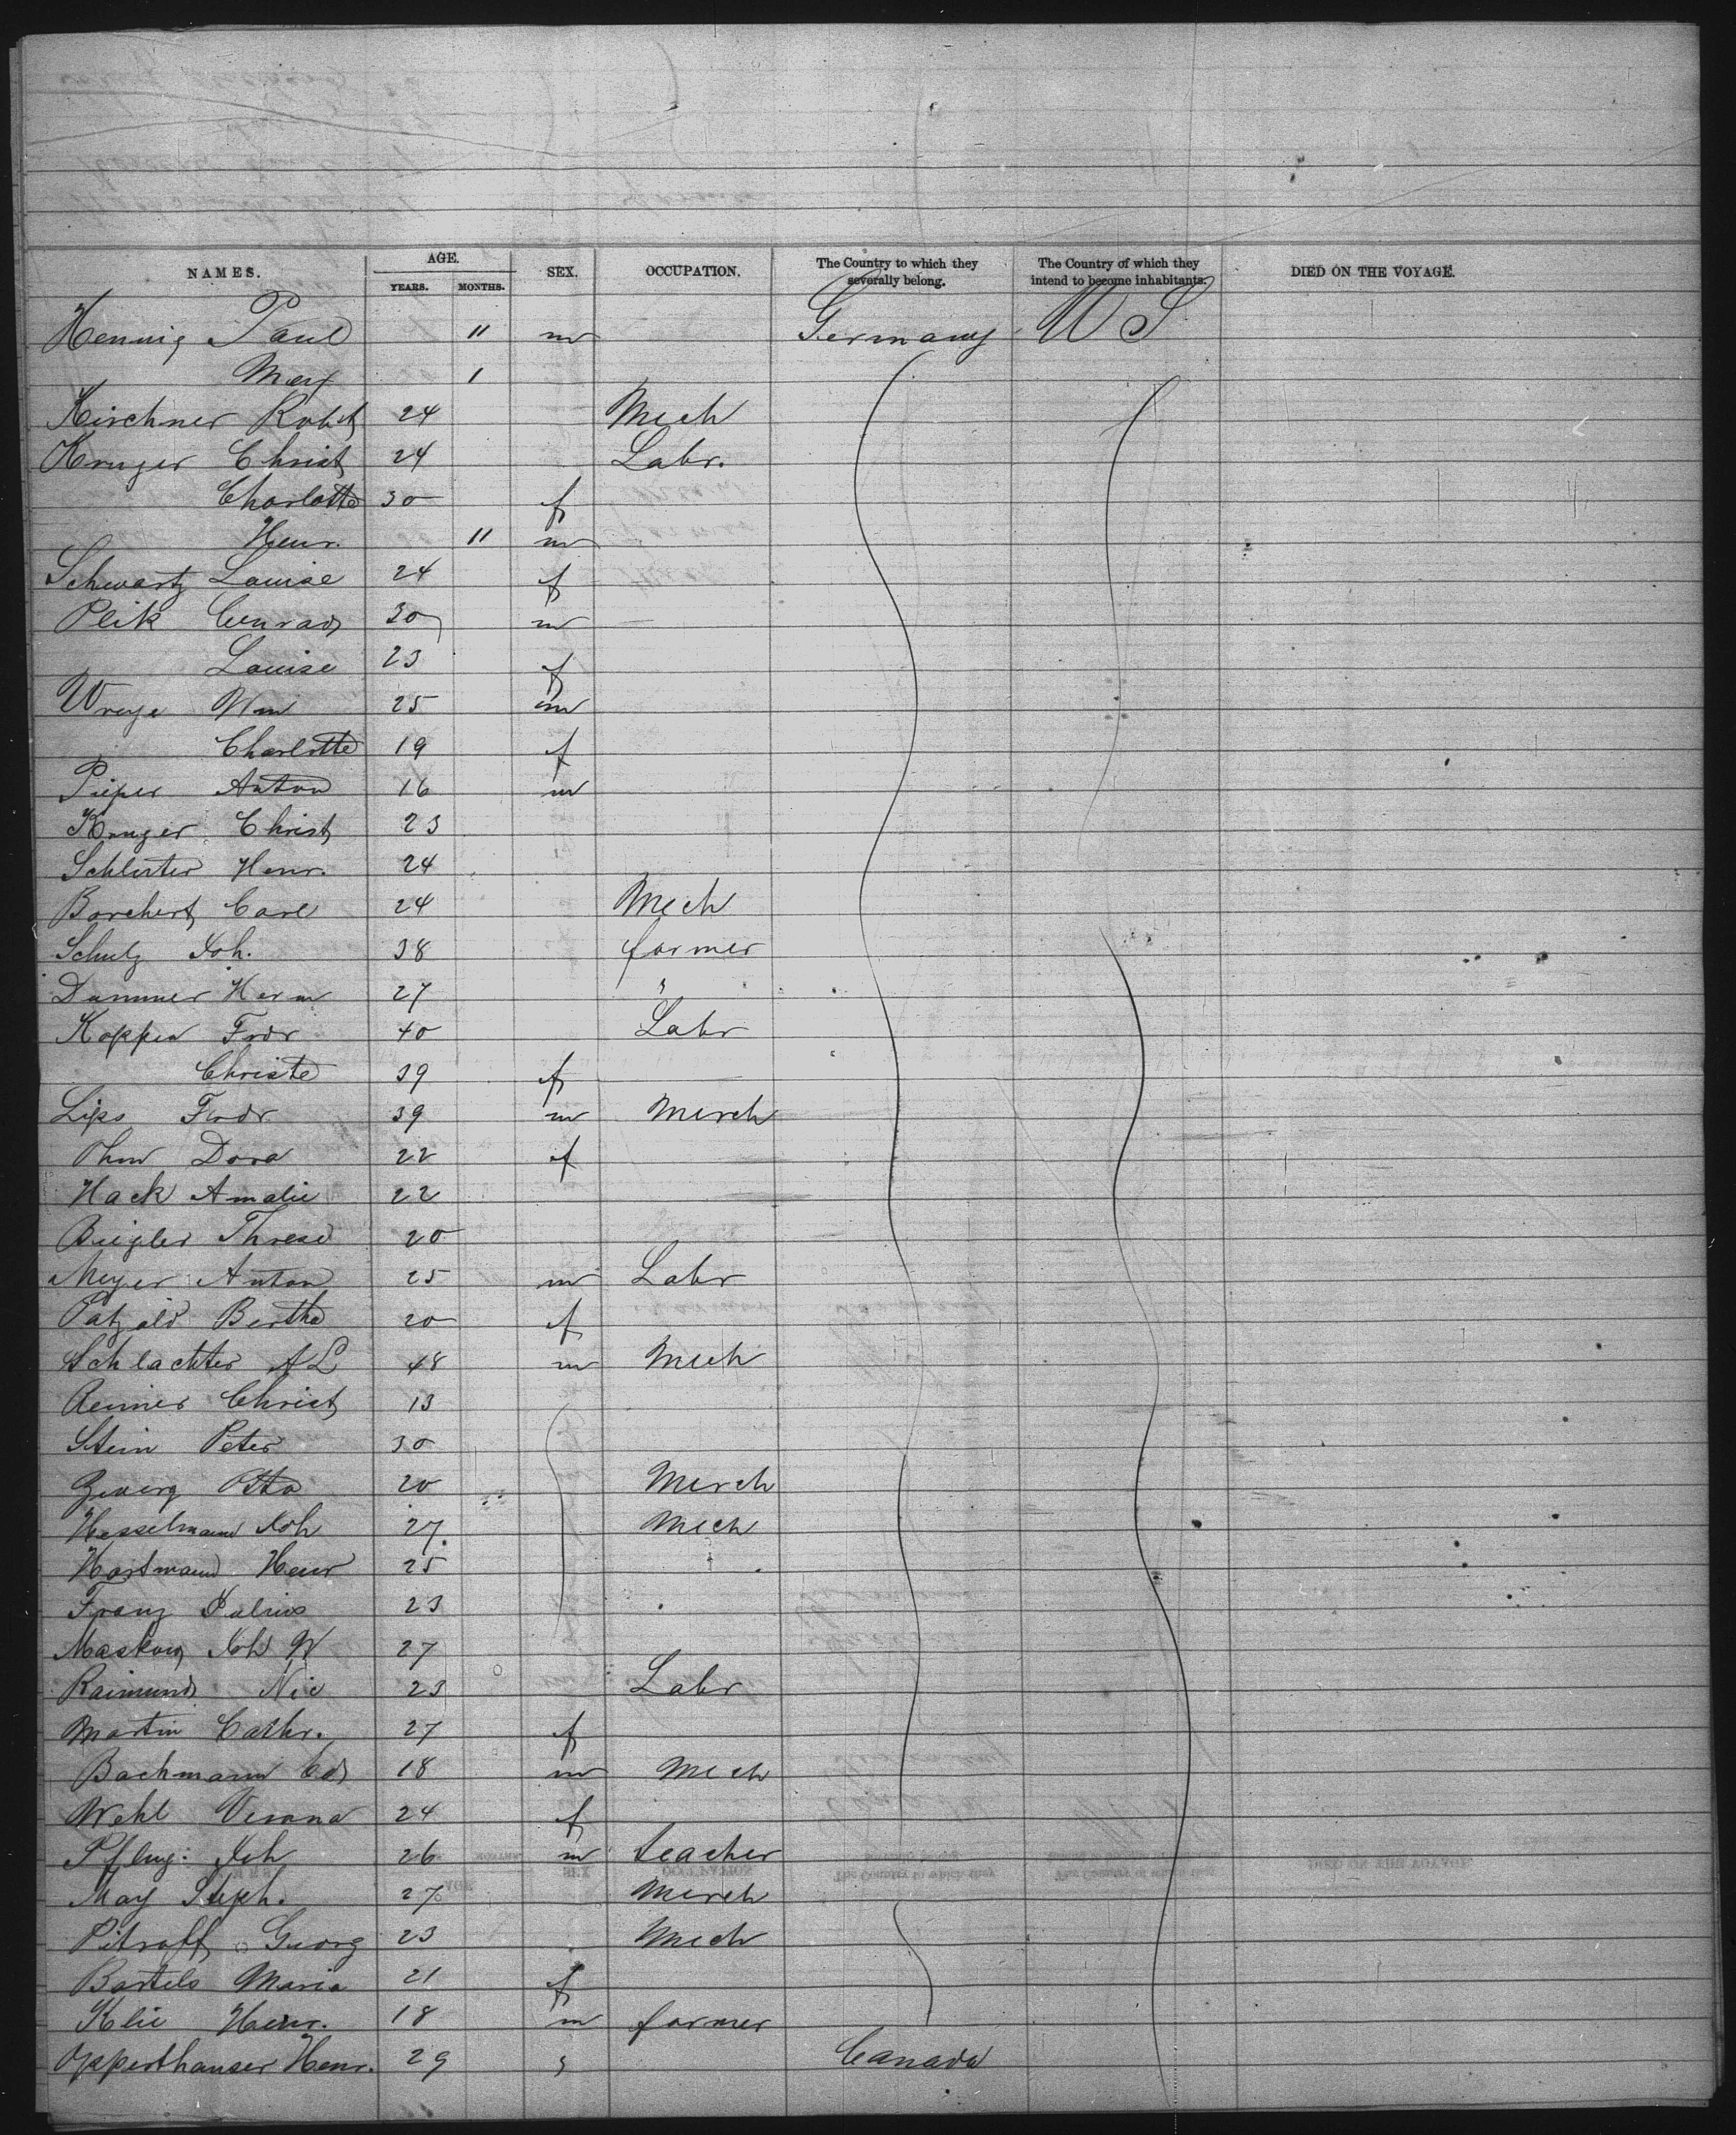 NAMES. AGE. SEX. OCCUPATION. The Country to which they severally belong. The Country of which they intend to become inhabitants. DIED ON THE VOYAGE.
YEARS. MONTHS.
Hennig Paul 11 m Germany U S
Max 1
Kirchner Robt 24 Mech
Kruger Christ 24 Labr.
Charlotte 30 f
Henr. 11 m
Schwartz Louise 24 f
Plik Conrad 30 m
Louise 23 f
Wreye Wm 25 m
Charlotte 19 f
Pieper Anton 16 m
Kruger Christ 23
Schluter Henr. 24
Borchert Carl 24 Mech
Schulz Joh. 38 farmer
Dammer Herm 27 "
Koppen Fredr 40 Labr
Christe 39 f
Lips Fredr. 39 m Merch
Dora 22 f
Hack Amalie 22
Biegler Threse 20
Meyer Anton 25 m Labr
Patzold Bertha 20 f
Schlachter A L 48 m Mech
Reimer Christ 13
Stein Peter 30
Otto 20 Merch
Hesselmann Joh 27 Mech
Hartmann Henr 25
Franz Julius 23
Maskow Joh W 27
Raimund Nic 23 Labr
Martin Cathr. 27 f
Bachmann Ed 18 m Mech
Wehl Verona 24 f
Pflug: Joh 26 m teacher
May Steph. 27 Merch
Pitroff Georg 23 Mech
Bartels Maria 21 f
Klie Henr. 18 m farmer
Opperthauser Henr. 29 Canada